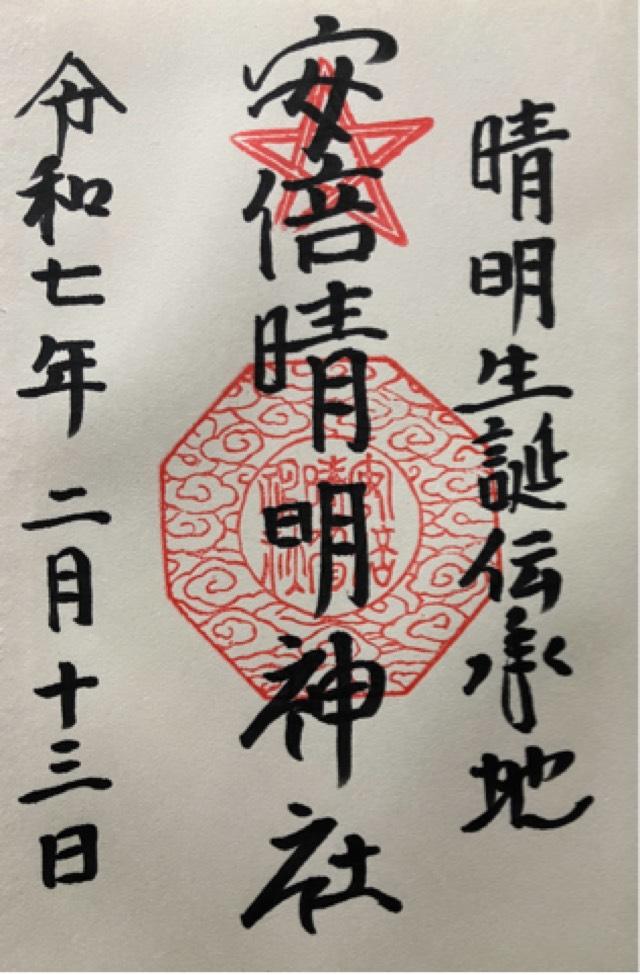 晴明生誕伝承地
安倍晴明神社
令和七年二月十三日